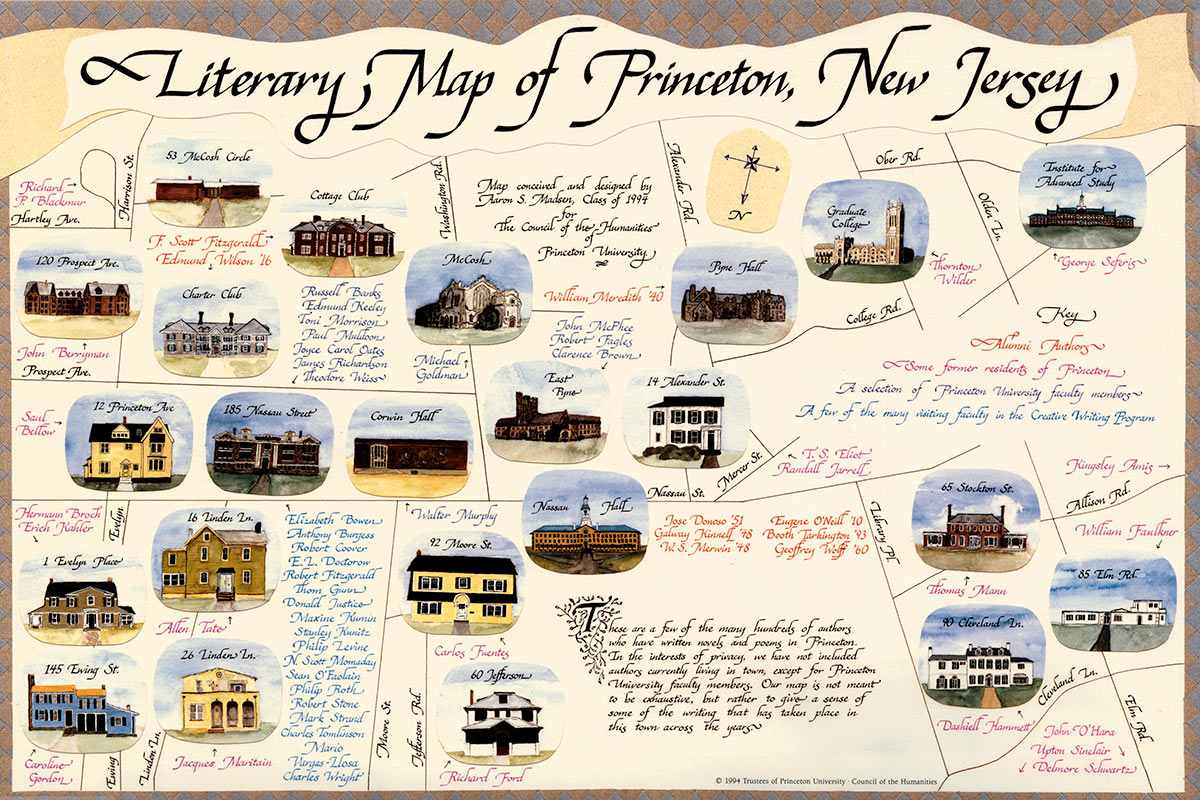 Literary Map of Princeton, New Jersey
Richard
P. Blackmur
Hartley Ave.
Harrison St.
53 McCosh Circle
F. Scott Fitzgerald
Edmund Wilson '16
Cottage Club
Washington Rd.
Map conceived and designed by
Aaron S. Madsen, Class of 1994
for
The Council of the Humanities
of
Princeton University
Alexander Rd.
N
Ober Rd.
Olden Ln.
Institute for
Advanced Study
George Seferis
Graduate
College
Thornton
Wilder
College Rd.
120 Prospect Ave.
John Berryman
Prospect Ave.
Charter Club
Russell Banks
Edmund Keeley
Toni Morrison
Paul Muldoon
Joyce Carol Oates
James Richardson
Theodore Weiss
McCosh
Michael
Goldman
William Meredith '40
Pyne Hall
John McPhee
Robert Fagles
Clarence Brown
East
Pyne
14 Alexander St.
Key
Alumni Authors
Some former residents of Princeton
A selection of Princeton University faculty members
A few of the many visiting faculty in the Creative Writing Program
Saul
Bellow
12 Princeton Ave
185 Nassau Street
Corwin Hall
Mercer St.
T. S. Eliot
Randall Jarrell
Nassau St.
Kingsley Amis
Allison Rd.
William Faulkner
Hermann Broch
Erich Kahler
Evelyn
16 Linden Ln.
Allen Tate
Elizabeth Bowen
Anthony Burgess
Robert Coover
E. L. Doctorow
Robert Fitzgerald
Thom Gunn
Donald Justice
Maxine Kumin
Stanley Kunitz
Philip Levine
N Scott Momaday
Sean O'Faolain
Philip Roth
Robert Stone
Mark Strand
Charles Tomlinson
Mario
Vargas-Llosa
Charles Wright
Walter Murphy
92 Moore St.
Carlos Fuentes
Nassau Hall
Jose Donoso '51
Galway Kinnell '48
W. S. Merwin '48
Eugene O'Neill '10
Booth Tarkington '93
Geoffrey Wolff '60
Library Pl.
65 Stockton St.
Thomas Mann
85 Elm Rd.
1 Evelyn Place
145 Ewing St.
Caroline
Gordon
Ewing
Linden Ln.
26 Linden Ln.
Jacques Maritain
Moore St.
Jefferson Rd.
60 Jefferson
Richard Ford
These are a few of the many hundreds of authors
who have written novels and poems in Princeton.
In the interests of privacy, we have not included
authors currently living in town, except for Princeton
University faculty members. Our map is not meant
to be exhaustive, but rather to give a sense of
some of the writing that has taken place in
this town across the years.
90 Cleveland Ln.
Dashiell Hammett
Cleveland Ln.
Elm Rd.
John O'Hara
Upton Sinclair
Delmore Schwartz
© 1994 Trustees of Princeton University · Council of the Humanities